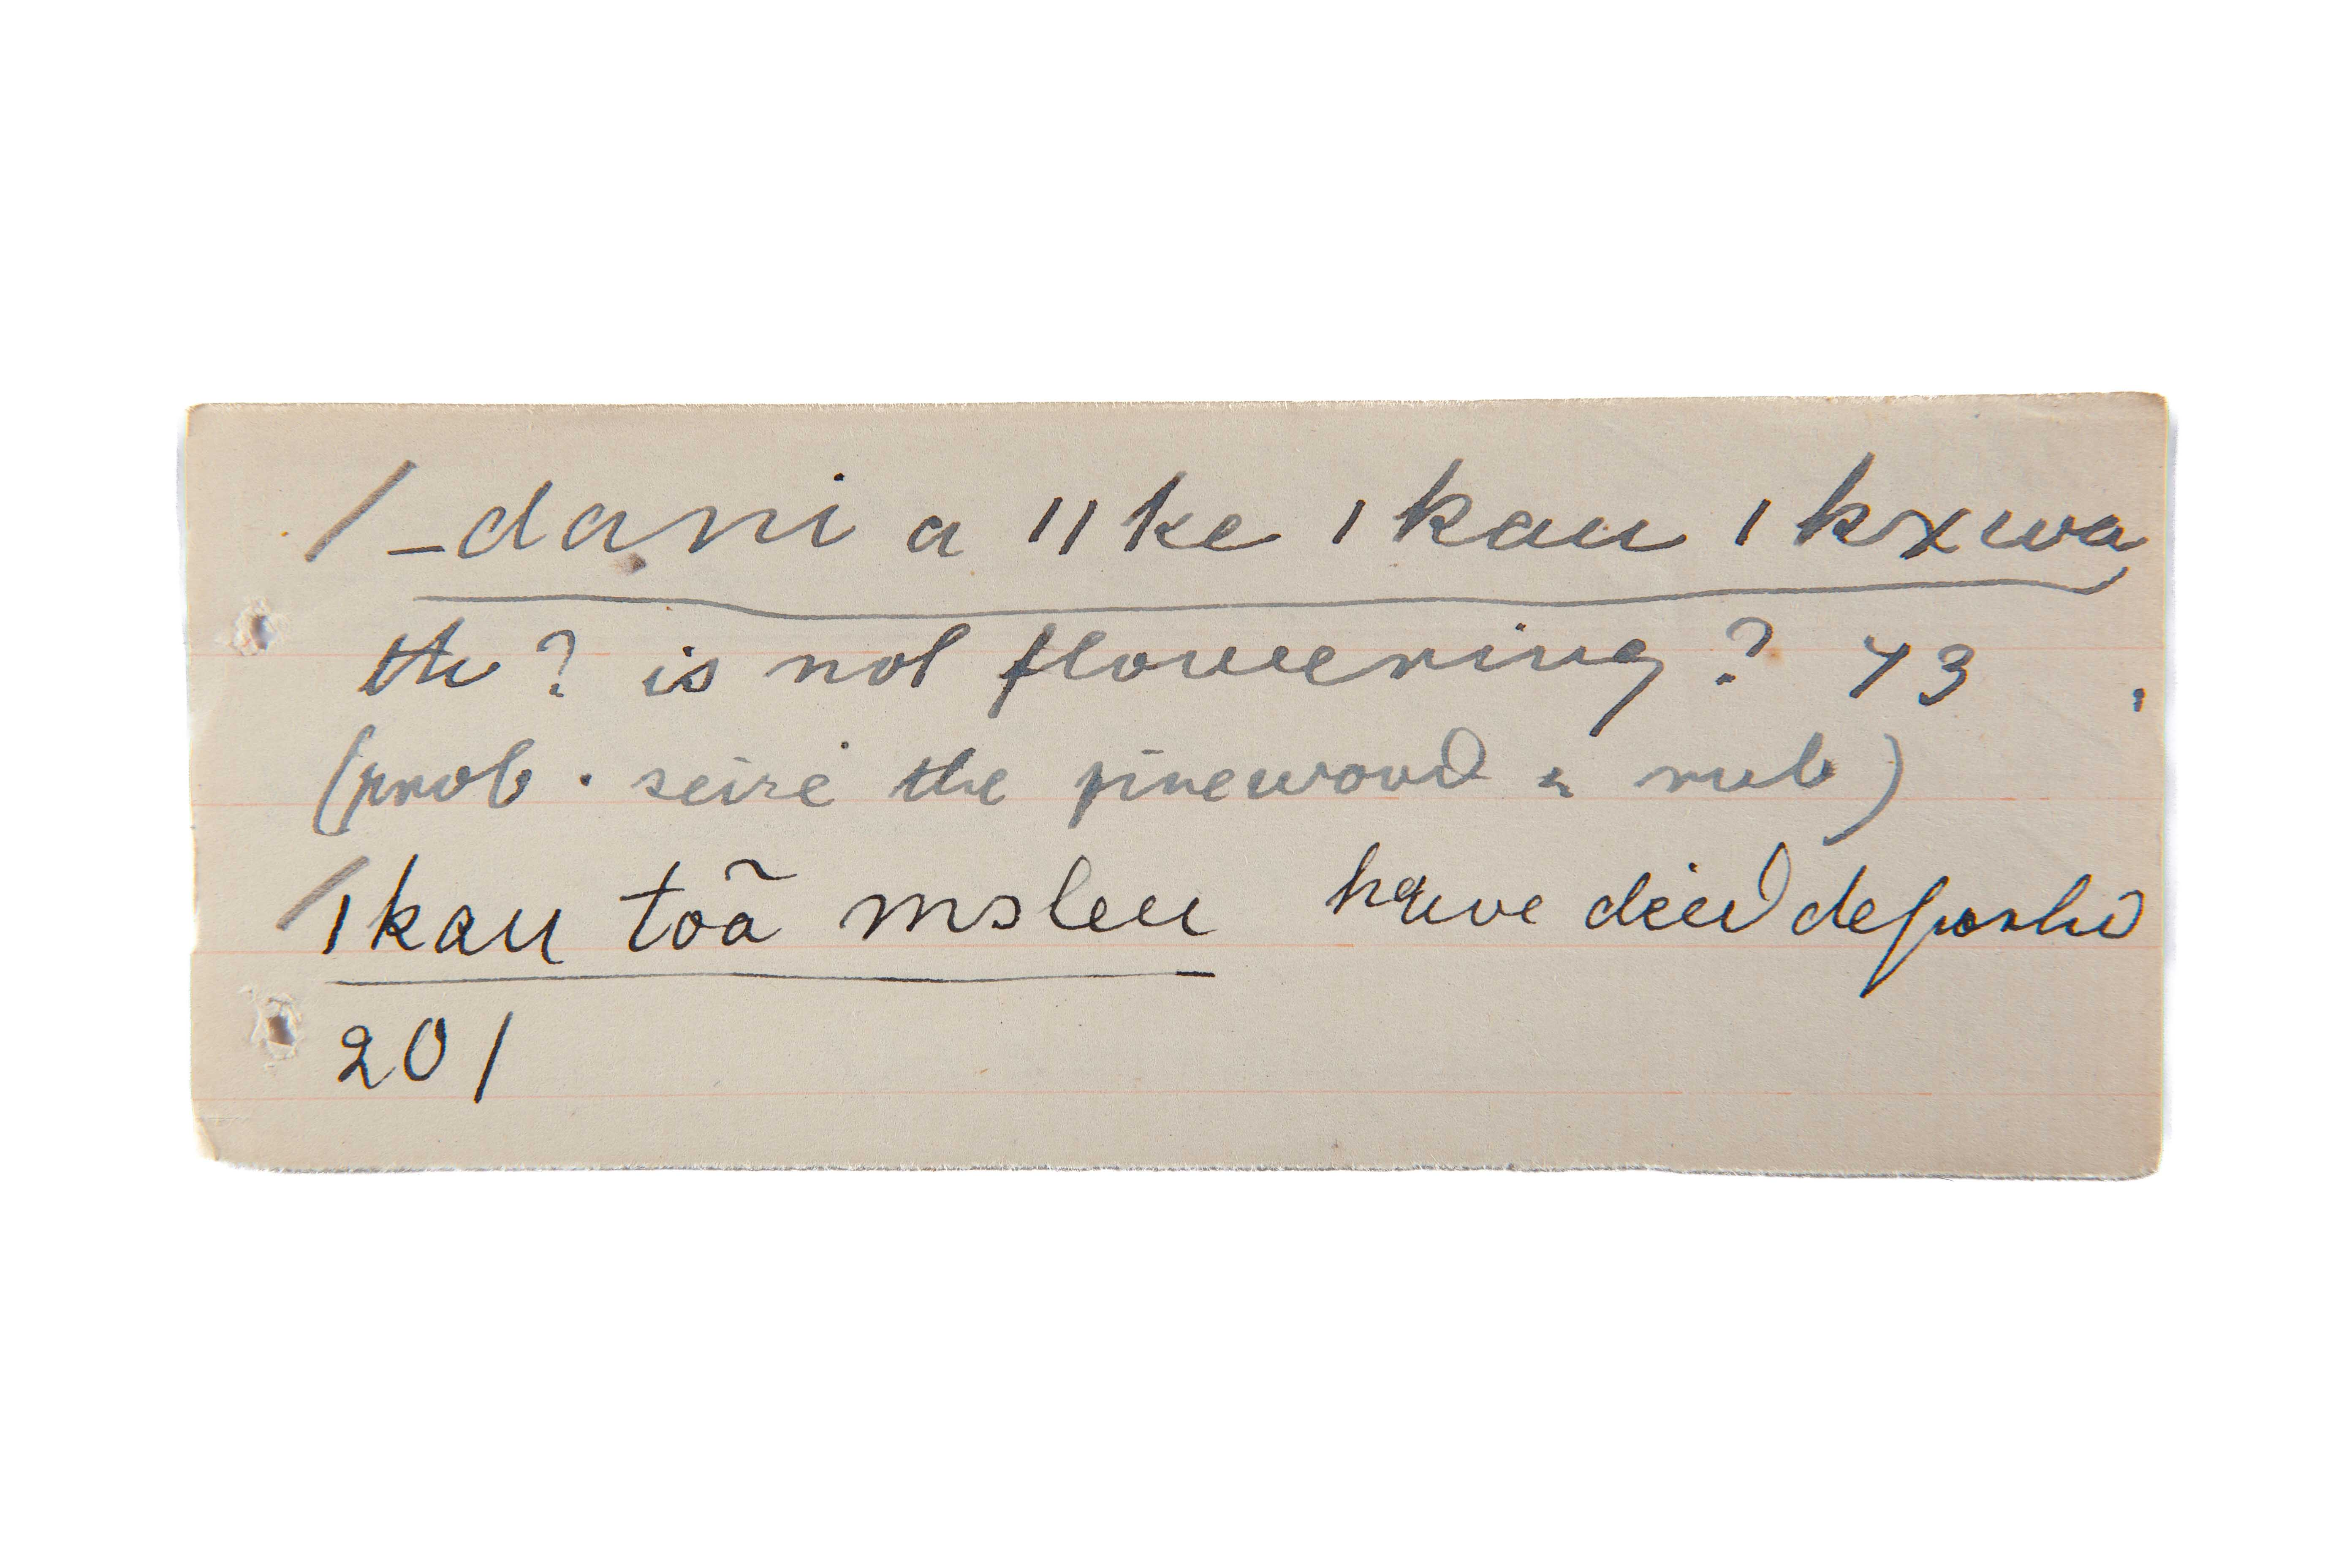 / _dani a ǁke ǀkau ǀkxwa
the ? is not flowering ? 73
(prob. seize the firewood & rub)
/ ǀkau toã msleu have died
201